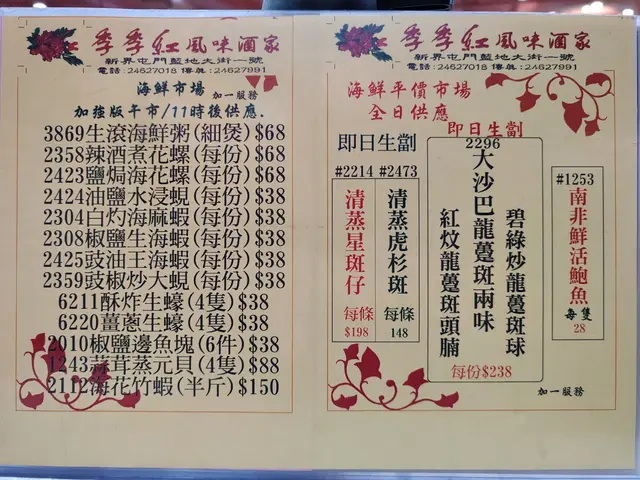 季季紅風味酒家
新界屯門藍地大街一號
電話:24627018 傳真:24627991
海鮮市場
加一服務
加強版午市/11時後供應.
3869生滾海鮮粥(細煲)$68
2358辣酒煮花螺(每份)$68
2423鹽焗海花螺(每份)$68
2424油鹽水浸蜆(每份)$38
2304白灼海麻蝦(每份)$38
2308椒鹽生海蝦(每份)$38
2425豉油王海蝦(每份)$38
2359豉椒炒大蜆(每份)$38
6211酥炸生蠔(4隻)$38
6220薑蔥生蠔(4隻)$38
2010椒鹽邊魚塊(6件)$38
1243蒜茸蒸元貝(4隻)$88
2112海花竹蝦(半斤)$150
季季紅風味酒家
新界屯門藍地大街一號
電話:24627018 傳真:24627991
海鮮平價市場
全日供應
即日生劏
即日生劏
#2214
清蒸星斑仔
每條
$198
#2473
清蒸虎杉斑
每條
148
2296
大沙巴龍躉斑兩味
碧綠炒龍躉斑球
紅炆龍躉斑頭腩
每份$238
#1253
南非鮮活鮑魚
每隻
28
加一服務